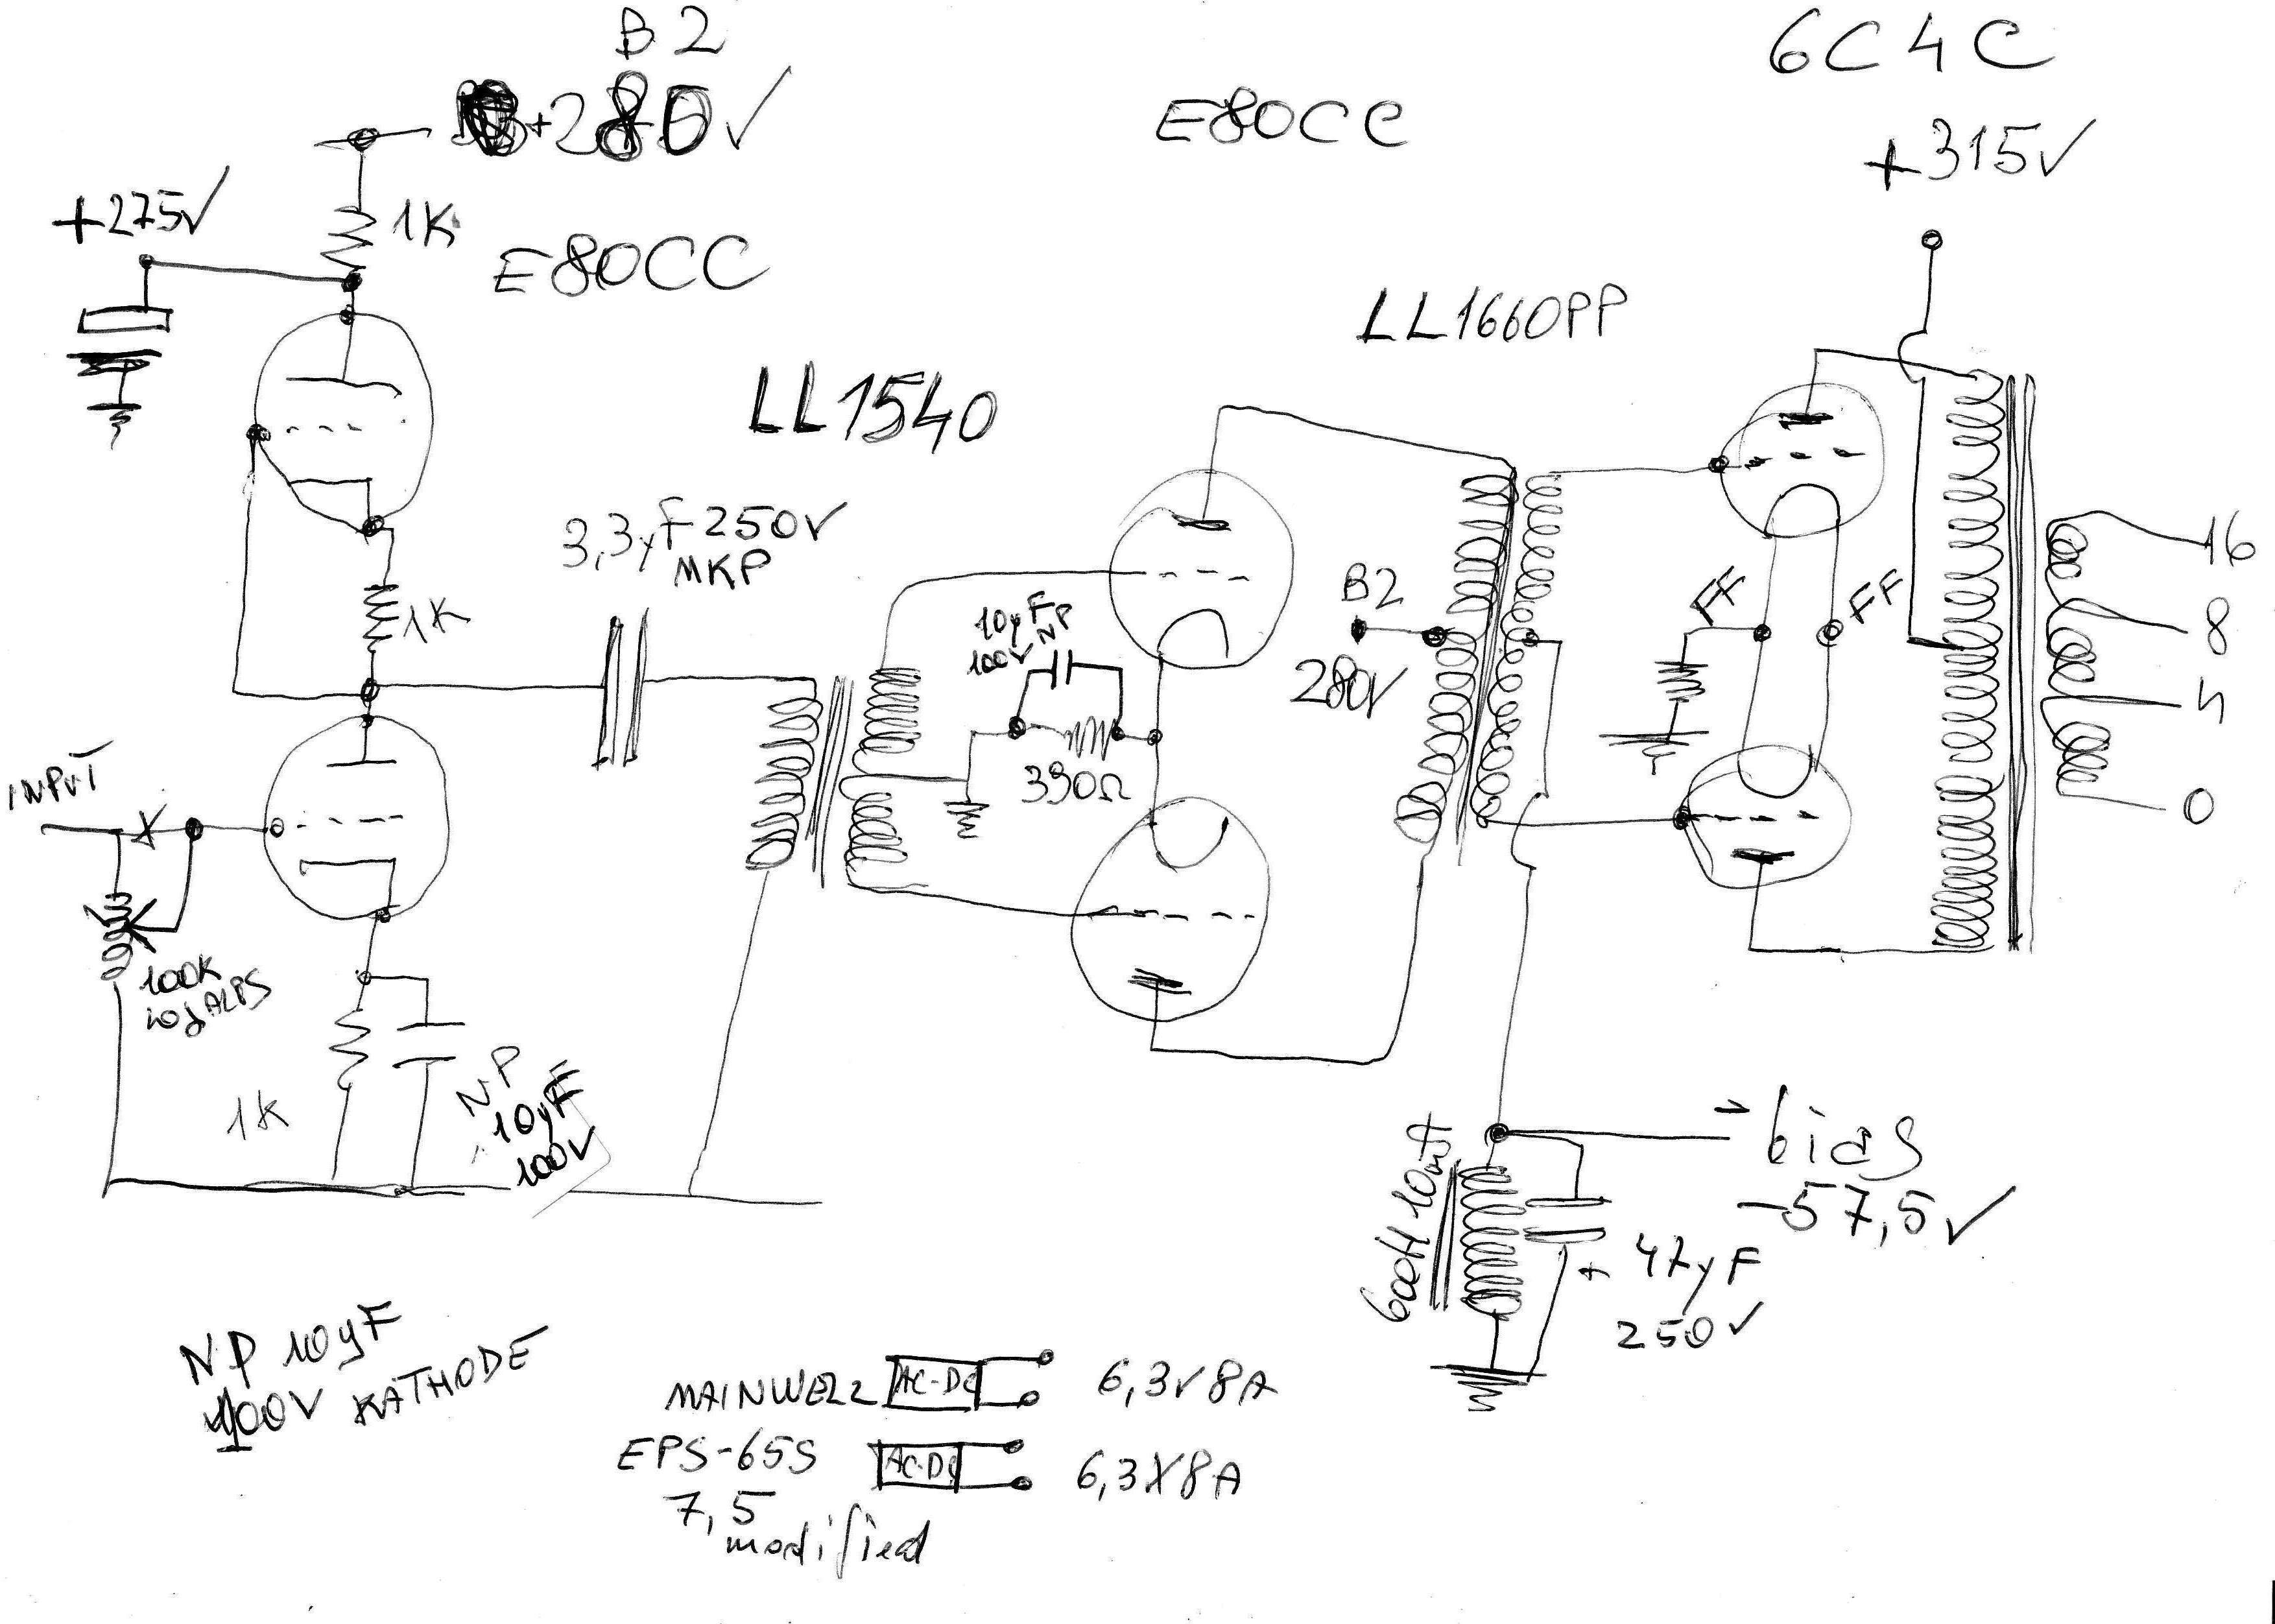 B2
+280V
+275V
1K
E80CC
E80CC
6C4C
+315V
LL1660PP
LL1540
3,3yF 250V
MKP
1K
10yF
NP
100V
390Ω
B2
280V
FF
FF
16
8
4
0
INPUT
100K
log ALPS
1K
NP
10yF
100V
- bias
-57,5V
600H 10mA
+ 47yF
250V
NP 10yF
100V KATHODE
MAINWELL AC-DC 6,3V 8A
EPS-65S AC-DC 6,3V 8A
7,5
modified